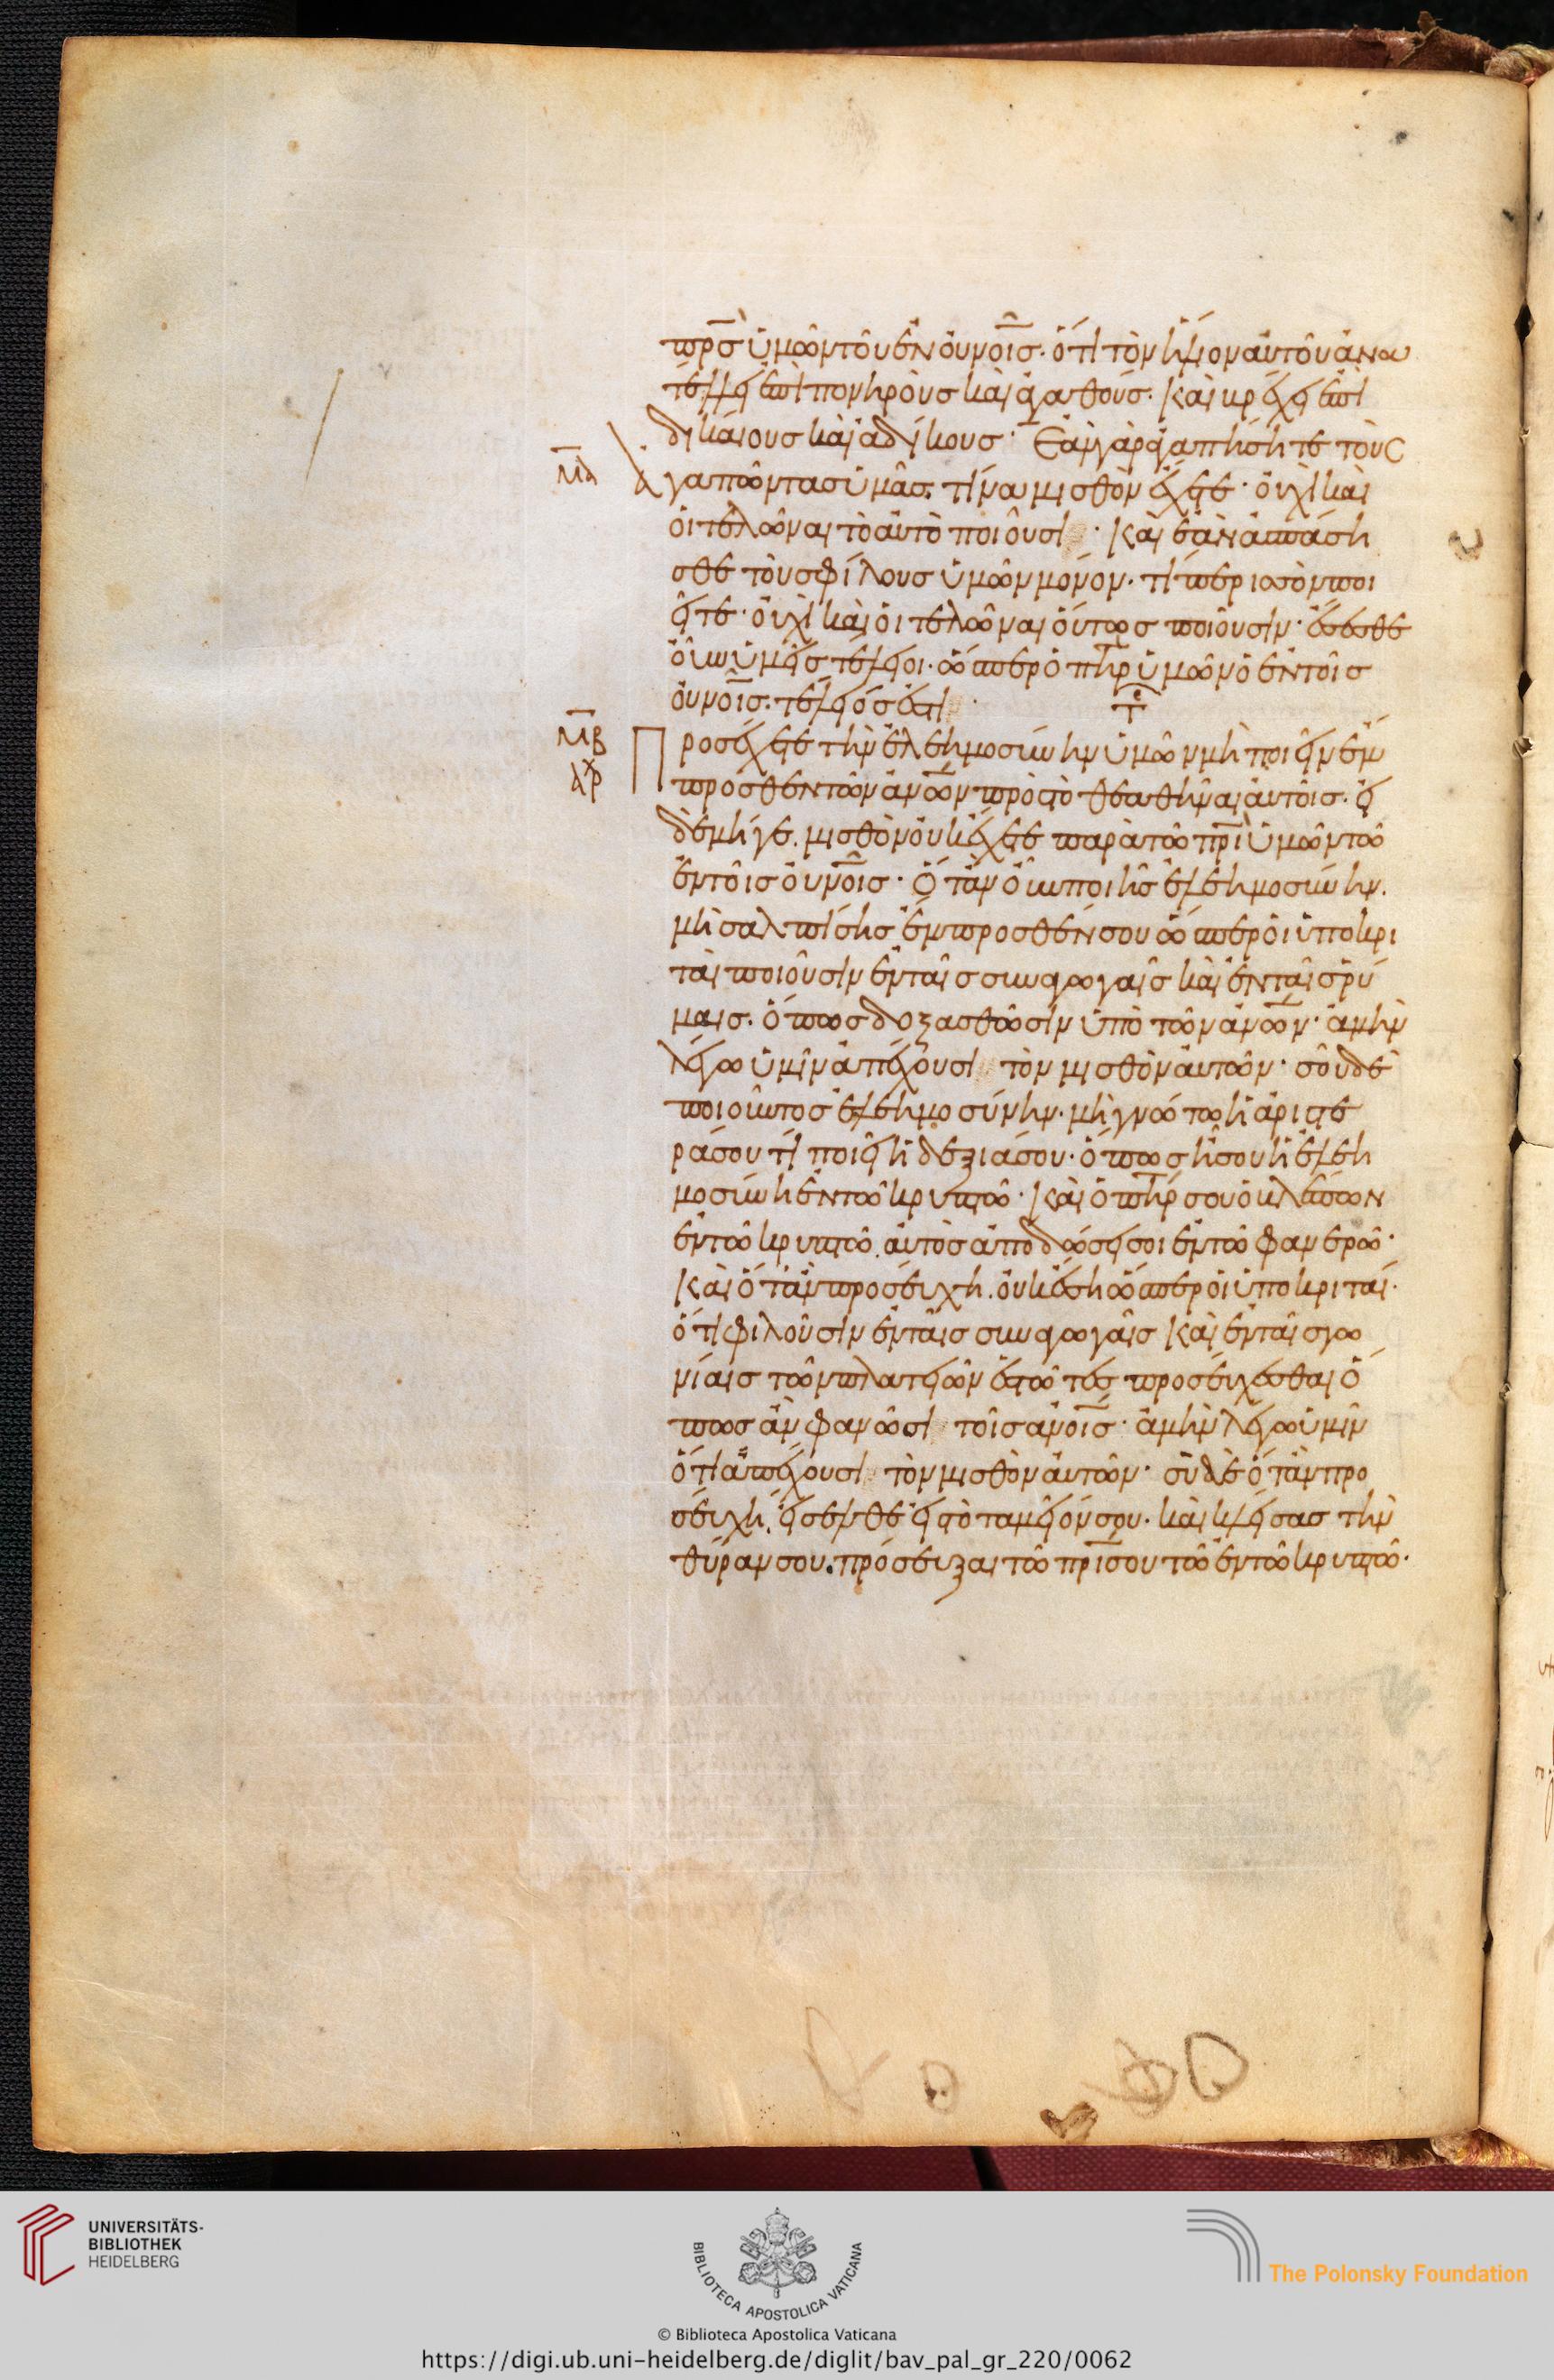 πρ̅σ ὑμῶν τοῦ ἐν οὐνοῖ̅σ· ὅτι τὸν ἥλιον αὐτοῦ ἀνα
τέλλει ἐπὶ πονηροὺσ καὶ ἀγαθούσ· καὶ βρέχει ἐπὶ
δικαίουσ καὶ ἀδίκουσ· Ἐὰν γὰρ ἀγαπήσητε τοὺσ
μ̅α ἀγαπῶντασ ὑμᾶσ. τίνα μισθὸν ἔχετε· οὐχὶ καὶ
οἱ τελῶναι τὸ αὐτὸ ποιοῦσι· καὶ ἐὰν ἀσπάση
σθε τοὺσ φίλουσ ὑμῶν μόνον· τί περισσὸν ποι
εῖτε· οὐχὶ καὶ οἱ τελῶναι οὕτωσ ποιοῦσιν· ἔσεσθε
οὖν ὑμεῖσ τέλειοι· ὥσπερ ὁ π̅η̅ρ ὑμῶν ὁ ἐν τοῖσ
οὐνοῖ̅σ· τέλειόσ ἐστι·
μ̅β Προσέχετε τὴν ἐλεημοσύνην ὑμῶν μὴ ποιεῖν ἔμ
ἀρχ προσθεν τῶν ἀν̅ω̅ν πρὸσ τὸ θεαθῆναι αὐτοῖσ· εἰ
δὲ μήγε. μισθὸν οὐκ ἔχετε παρὰ τῶ π̅ρ̅ι ὑμῶν τῶ
ἐν τοῖσ οὐνοῖ̅σ· Ὅταν οὖν ποιῆσ ἐλεημοσύνην.
μὴ σαλπίσησ ἔμπροσθέν σου ὥσπερ οἱ ὑποκρι
ταὶ ποιοῦσιν ἐν ταῖσ συναγωγαῖσ καὶ ἐν ταῖσ ῥύ
μαισ· ὅπωσ δοξασθῶσιν ὑπὸ τῶν ἀν̅ω̅ν· ἀμὴν
λέγω ὑμῖν ἀπέχουσι τὸν μισθὸν αὐτῶν· σοῦ δὲ
ποιοῦντοσ ἐλεημοσύνην· μὴ γνώτω ἡ ἀριστε
ρά σου τί ποιεῖ ἡ δεξιά σου· ὅπωσ ἦ σου ἡ ἐλεη
μοσύνη ἐν τῶ κρυπτῶ· καὶ ὁ π̅η̅ρ σου ὁ βλέπων
ἐν τῶ κρυπτῶ. αὐτὸσ ἀποδώσει σοι ἐν τῶ φανερῶ·
καὶ ὅταν προσεύχη. οὐκ ἔση ὥσπερ οἱ ὑποκριταί·
ὅτι φιλοῦσιν ἐν ταῖσ συναγωγαῖσ καὶ ἐν ταῖσ γω
νίαισ τῶν πλατειῶν ἑστῶτεσ προσεύχεσθαι ὅ
πωσ ἂν φανῶσι τοῖσ ἀν̅ο̅ι̅σ· ἀμὴν λέγω ὑμῖν
ὅτι ἀπέχουσι τὸν μισθὸν αὐτῶν· σὺ δὲ ὅταν προ
σεύχη. εἴσελθε εἰσ τὸ ταμεῖόν σου· καὶ κλείσασ τὴν
θύραν σου. πρόσευξαι τῶ π̅ρ̅ι σου τῶ ἐν τῶ κρυπτῶ·
UNIVERSITÄTS-
BIBLIOTHEK
HEIDELBERG
BIBLIOTECA APOSTOLICA VATICANA
The Polonsky Foundation
© Biblioteca Apostolica Vaticana
https://digi.ub.uni-heidelberg.de/diglit/bav_pal_gr_220/0062